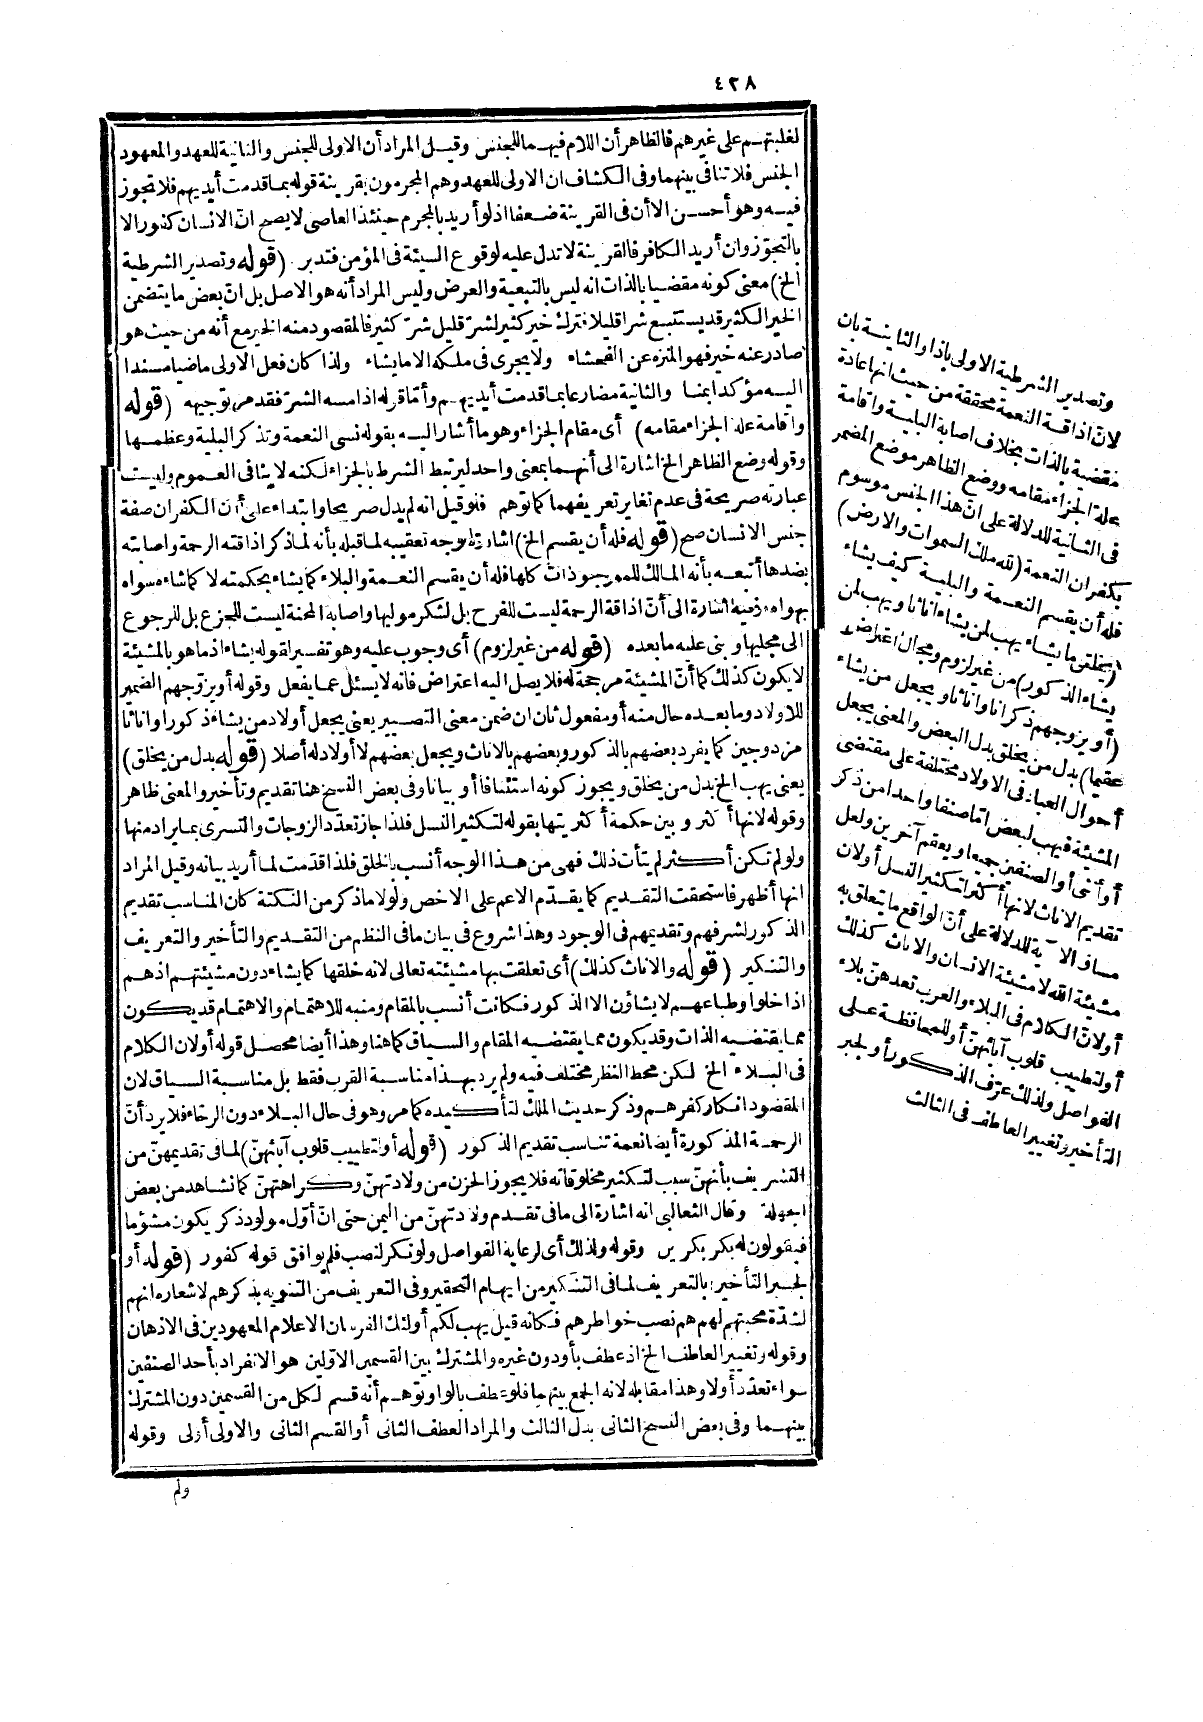 ٤٢٨
لغلبتهم على غيرهم فالظاهر أن اللام فيهما للجنس وقيل المراد أن الاولى للجنس والثانية للعهد والمعهود
الجنس فلا تنافى بينهما وفى الكشاف ان الاولى للعهد وهم المجرمون بقرينة قوله بما قدمت أيديهم فلا تجوز
فيه وهو أحسن الا أن فى القرينة ضعفا اذ لو أريد بالمجرم حينئذ العاصى لا يصح انّ الانسان كفور الا
بالتجوّز وان أريد الكافر فالقرينة لا تدل عليه لوقوع السيئة فى المؤمن فتدبر (قوله وتصدير الشرطية
الخ) معنى كونه مقضيا بالذات انه ليس بالتبعية والعرض وليس المراد أنه هو الاصل بل انّ بعض ما يتضمن
الخير الكثير قد يستتبع شرا قليلا فترك خير كثير لشرّ قليل شرّ كثير فالمقصود منه الخير مع أنه من حيث هو
صادر عنه خير فهو المنزه عن الفحشاء ولا يجرى فى ملكه الا ما يشاء ولذا كان فعل الاولى ماضيا مسندا
اليه مؤكدا بمنا والثانية مضارعا بما قدمت أيديهم وأمّا قوله اذا مسه الشرّ فقد مر توجيهه (قوله
واقامة علة الجزاء مقامه) أى مقام الجزاء وهو ما أشار اليه بقوله نسى النعمة وتذكر البلية وعظمها
وقوله وضع الظاهر الخ اشارة الى أنهما بمعنى واحد ليرتبط الشرط بالجزاء لكنه لا ينافى العموم وليست
عبارته صريحة فى عدم تغاير تعريفهما كما توهم فلو قيل انه لم يدل صريحا وابتداء على أنّ الكفران صفة
جنس الانسان صح (قوله فله أن يقسم الخ) اشارة لوجه تعقيبه لما قبله بأنه لما ذكر اذاقته الرحمة واصابته
بضدها أتبعه بأنه المالك للموجودات كلها فله أن يقسم النعمة والبلاء كما يشاء بحكمته لا كما شاء سواه
بهواه وفيه اشارة الى أنّ اذاقة الرحمة ليست للفرح بل لشكر موليها واصابة المحنة ليست للجزع بل للرجوع
الى مجليها وبنى عليه ما بعده (قوله من غير لزوم) أى وجوب عليه وهو تفسير لقوله يشاء اذ ما هو بالمشيئة
لا يكون كذلك كما أنّ المشيئة مرجحة له فلا يصل اليه اعتراض فانه لا يسئل عما يفعل وقوله أو يزوجهم الضمير
للاولاد وما بعده حال منه أو مفعول ثان ان ضمن معنى التصيير يعنى يجعل أولاد من يشاء ذكورا واناثا
مزدوجين كما يفرد بعضهم بالذكور وبعضهم بالاناث ويجعل بعضهم لا أولاد له أصلا (قوله بدل من يخلق)
يعنى يهب الخ بدل من يخلق ويجوز كونه استئنافا أو بيانا وفى بعض النسخ هنا تقديم وتأخير والمعنى ظاهر
وقوله لانها أكثر وبين حكمة أكثريتها بقوله لتكثير النسل فلذا جاز تعدّد الزوجات والتسرى بما يراد منها
ولو لم تكن أكثر لم يتأت ذلك فهى من هذا الوجه أنسب بالخلق فلذا قدّمت لما أريد بيانه وقيل المراد
انها أظهر فاستحقت التقديم كما يقدّم الاعم على الاخص ولولا ما ذكر من النكتة كان المناسب تقديم
الذكور لشرفهم وتقديمهم فى الوجود وهذا شروع فى بيان ما فى النظم من التقديم والتأخير والتعريف
والتنكير (قوله والاناث كذلك) أى تعلقت بها مشيئته تعالى لانه خلقها كما يشاء دون مشيئتهم اذ هم
اذا خلوا وطباعهم لا يشاؤن الا الذكور فكانت أنسب بالمقام ومنبه للاهتمام والاهتمام قد يكون
مما يقتضيه الذات وقد يكون مما يقتضيه المقام والسياق كما هنا وهذا أيضا محصل قوله أو لان الكلام
فى البلاء الخ لكن محط النظر مختلف فيه ولم يرد بهذا مناسبة القرب فقط بل مناسبة السياق لان
المقصود انكار كفرهم وذكر حديث الملك لتأكيده كما مر وهو فى حال البلاء دون الرخاء فلا يرد أنّ
الرحمة المذكورة أيضا نعمة تناسب تقديم الذكور (قوله أو لتطييب قلوب آبائهنّ) لما فى تقديمهنّ من
التشريف بأنهنّ سبب لتكثير مخلوقاته فلا يجوز الحزن من ولادتهنّ وكراهتهنّ كما نشاهد من بعض
الجهلة وقال الثعالبى انه اشارة الى ما فى تقدم ولادتهنّ من اليمن حتى انّ أوّل مولود ذكر يكون مشؤما
فيقولون له بكر بكرين وقوله ولذلك أى لرعاية الفواصل ولو نكر لنصب فلم يوافق قوله كفور (قوله أو
لجبر التأخير) بالتعريف لما فى التنكير من ايهام التحقير وفى التعريف من التنويه بذكرهم لاشعاره انهم
لشدّة محبتهم لهم هم نصب خواطرهم فكانه قيل يهب لكم أولئك الفرسان الاعلام المعهودين فى الاذهان
وقوله وتغيير العاطف الخ اذ عطف بأو دون غيره والمشترك بين القسمين الاوّلين هو الانفراد بأحد الصنفين
سواء تعدّد أولا وهذا مقابله لانه الجمع بينهما فلو عطف بالواو توهم أنه قسم لكل من القسمين دون المشترك
بينهما وفى بعض النسخ الثانى بدل الثالث والمراد العطف الثانى أو القسم الثانى والاولى أولى وقوله
ولم
وتصدير الشرطية الاولى باذا والثانية بان
لانّ اذاقة النعمة محققة من حيث انها عادة
مقضية بالذات بخلاف اصابة البلية واقامة
علة الجزاء مقامه ووضع الظاهر موضع المضمر
فى الثانية للدلالة على انّ هذا الجنس موسوم
بكفران النعمة (لله ملك السموات والارض)
فله أن يقسم النعمة والبلية كيف يشاء
(يخلق ما يشاء يهب لمن يشاء اناثا ويهب لمن
يشاء الذكور) من غير لزوم ومجال اعتراض
(أو يزوجهم ذكرانا واناثا ويجعل من يشاء
عقيما) بدل من يخلق بدل البعض والمعنى يجعل
أحوال العباد فى الاولاد مختلفة على مقتضى
المشيئة فيهب لبعض امّا صنفا واحدا من ذكر
أو أنثى أو الصنفين جميعا ويعقم آخرين ولعل
تقديم الاناث لانها أكثر لتكثير النسل أو لان
مساق الآية للدلالة على أنّ الواقع ما يتعلق به
مشيئة الله لا مشيئة الانسان والاناث كذلك
أو لانّ الكلام فى البلاء والعرب تعدهنّ بلاء
أو لتطييب قلوب آبائهنّ أو للمحافظة على
الفواصل ولذلك عرّف الذكور أو لجبر
التأخير وتغيير العاطف فى الثالث